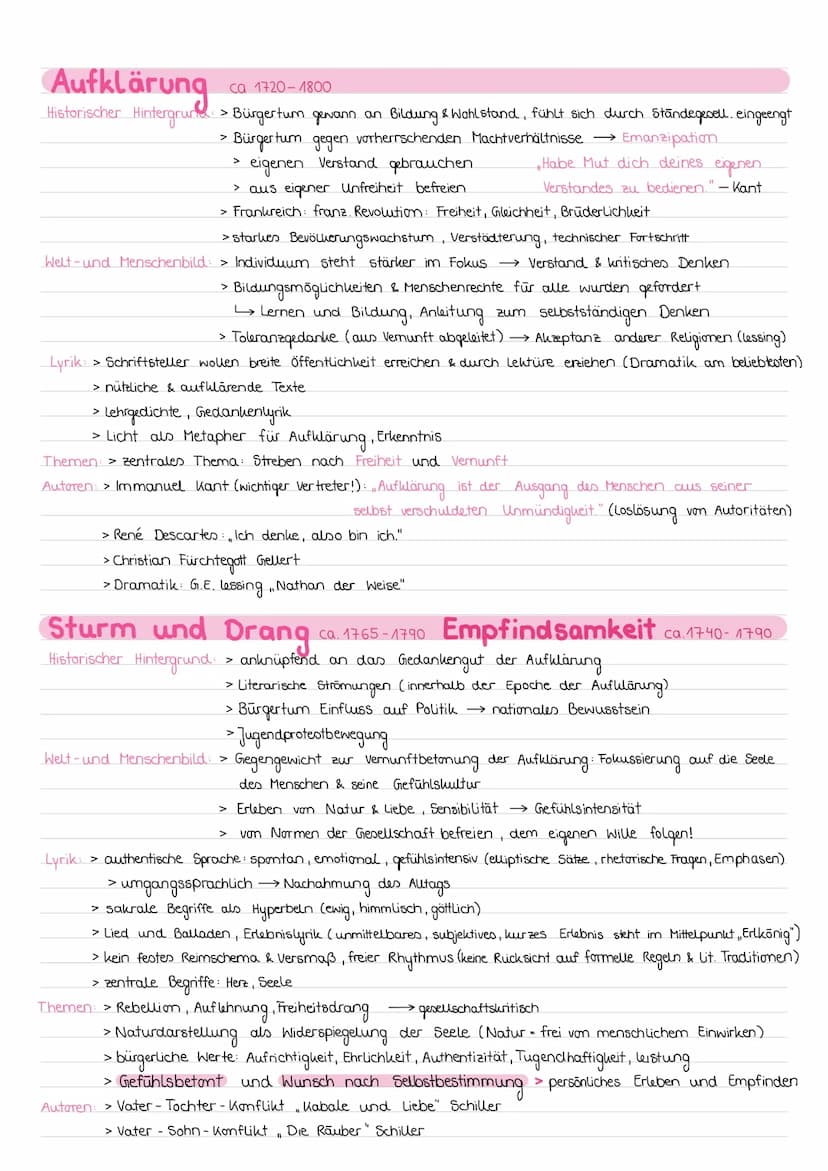 Aufklärung ca 1720-1800
Historischer Hintergrund: > Bürgertum gewann an Bildung & Wohlstand, fühlt sich durch Ständegesell. eingeengt
> Bürgertum gegen vorherrschenden Machtverhältnisse → Emanzipation
> eigenen Verstand gebrauchen „Habe Mut dich deines eigenen
> aus eigener Unfreiheit befreien Verstandes zu bedienen." – Kant
> Frankreich: franz. Revolution: Freiheit, Gleichheit, Brüderlichkeit
> starkes Bevölkerungswachstum, Verstädterung, technischer Fortschritt
Welt- und Menschenbild: > Individuum steht stärker im Fokus → Verstand & kritisches Denken
> Bildungsmöglichkeiten & Menschenrechte für alle wurden gefordert
↳ Lernen und Bildung, Anleitung zum selbstständigen Denken
> Toleranzgedanke (aus Vernunft abgeleitet) → Akzeptanz anderer Religionen (Lessing)
Lyrik: > Schriftsteller wollen breite Öffentlichkeit erreichen & durch Lektüre erziehen (Dramatik am beliebtesten)
> nützliche & aufklärende Texte
> Lehrgedichte, Gedankenlyrik
> Licht als Metapher für Aufklärung, Erkenntnis
Themen: > zentrales Thema: Streben nach Freiheit und Vernunft
Autoren: > Immanuel Kant (wichtiger Vertreter!): „Aufklärung ist der Ausgang des Menschen aus seiner
selbst verschuldeten Unmündigkeit." (Loslösung von Autoritäten)
> René Descartes: „Ich denke, also bin ich."
> Christian Fürchtegott Gellert
> Dramatik: G.E. Lessing „Nathan der Weise"
Sturm und Drang ca. 1765-1790 Empfindsamkeit ca. 1740-1790
Historischer Hintergrund: > anknüpfend an das Gedankengut der Aufklärung
> Literarische Strömungen (innerhalb der Epoche der Aufklärung)
> Bürgertum Einfluss auf Politik → nationales Bewusstsein
> Jugendprotestbewegung
Welt- und Menschenbild: > Gegengewicht zur Vernunftbetonung der Aufklärung: Fokussierung auf die Seele
des Menschen & seine Gefühlskultur
> Erleben von Natur & Liebe, Sensibilität → Gefühlsintensität
> von Normen der Gesellschaft befreien, dem eigenen Wille folgen!
Lyrik: > authentische Sprache: spontan, emotional, gefühlsintensiv (elliptische Sätze, rhetorische Fragen, Emphasen)
> umgangssprachlich → Nachahmung des Alltags
> sakrale Begriffe als Hyperbeln (ewig, himmlisch, göttlich)
> Lied und Balladen, Erlebnislyrik (unmittelbares, subjektives, kurzes Erlebnis steht im Mittelpunkt „Erlkönig")
> kein festes Reimschema & Versmaß, freier Rhythmus (keine Rücksicht auf formelle Regeln & lit. Traditionen)
> zentrale Begriffe: Herz, Seele
Themen: > Rebellion, Auflehnung, Freiheitsdrang → gesellschaftskritisch
> Naturdarstellung als Widerspiegelung der Seele (Natur = frei von menschlichem Einwirken)
> bürgerliche Werte: Aufrichtigkeit, Ehrlichkeit, Authentizität, Tugendhaftigkeit, Leistung
> Gefühlsbetont und Wunsch nach Selbstbestimmung > persönliches Erleben und Empfinden
Autoren: > Vater-Tochter-Konflikt „Kabale und Liebe" Schiller
> Vater-Sohn-Konflikt „Die Räuber" Schiller